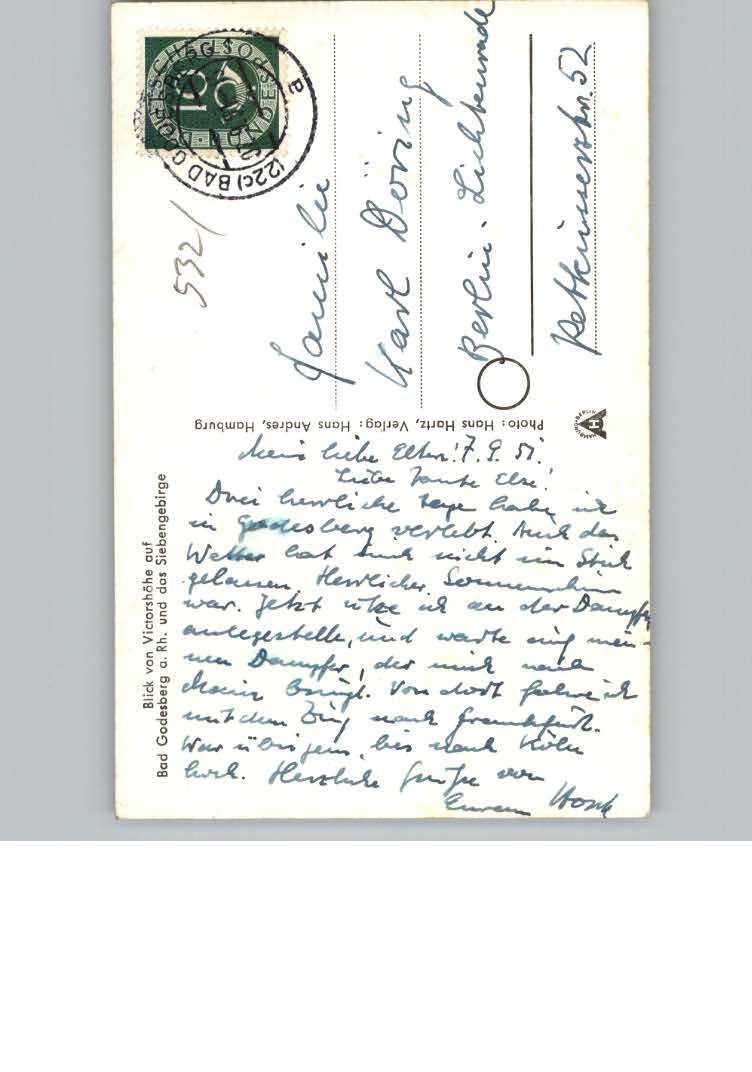 Meine liebe Eltern! 7. 9. 51.
Liebe Tante Else!
Drei herrliche Tage habe ich
in Godesberg verlebt. Auch das
Wetter hat mich nicht im Stich
gelassen. Herrlicher Sonnenschein
war. Jetzt sitze ich an der Dampfer
anlegestelle, und warte auf mei-
nen Dampfer, der mich nach
Mainz bringt. Von dort fahre ich
mit dem Zug nach Frankfurt.
War übrigens bis nach Köln
hoch. Herzliche Grüße von
Eurem
Familie
Karl Döring
Berlin-Lichtenrade
Retkiwerstr. 52
532/
Blick von Victorshöhe auf
Bad Godesberg a. Rh. und das Siebengebirge
Photo: Hans Hartz, Verlag: Hans Andres, Hamburg
(22c) BAD GODESBERG
a